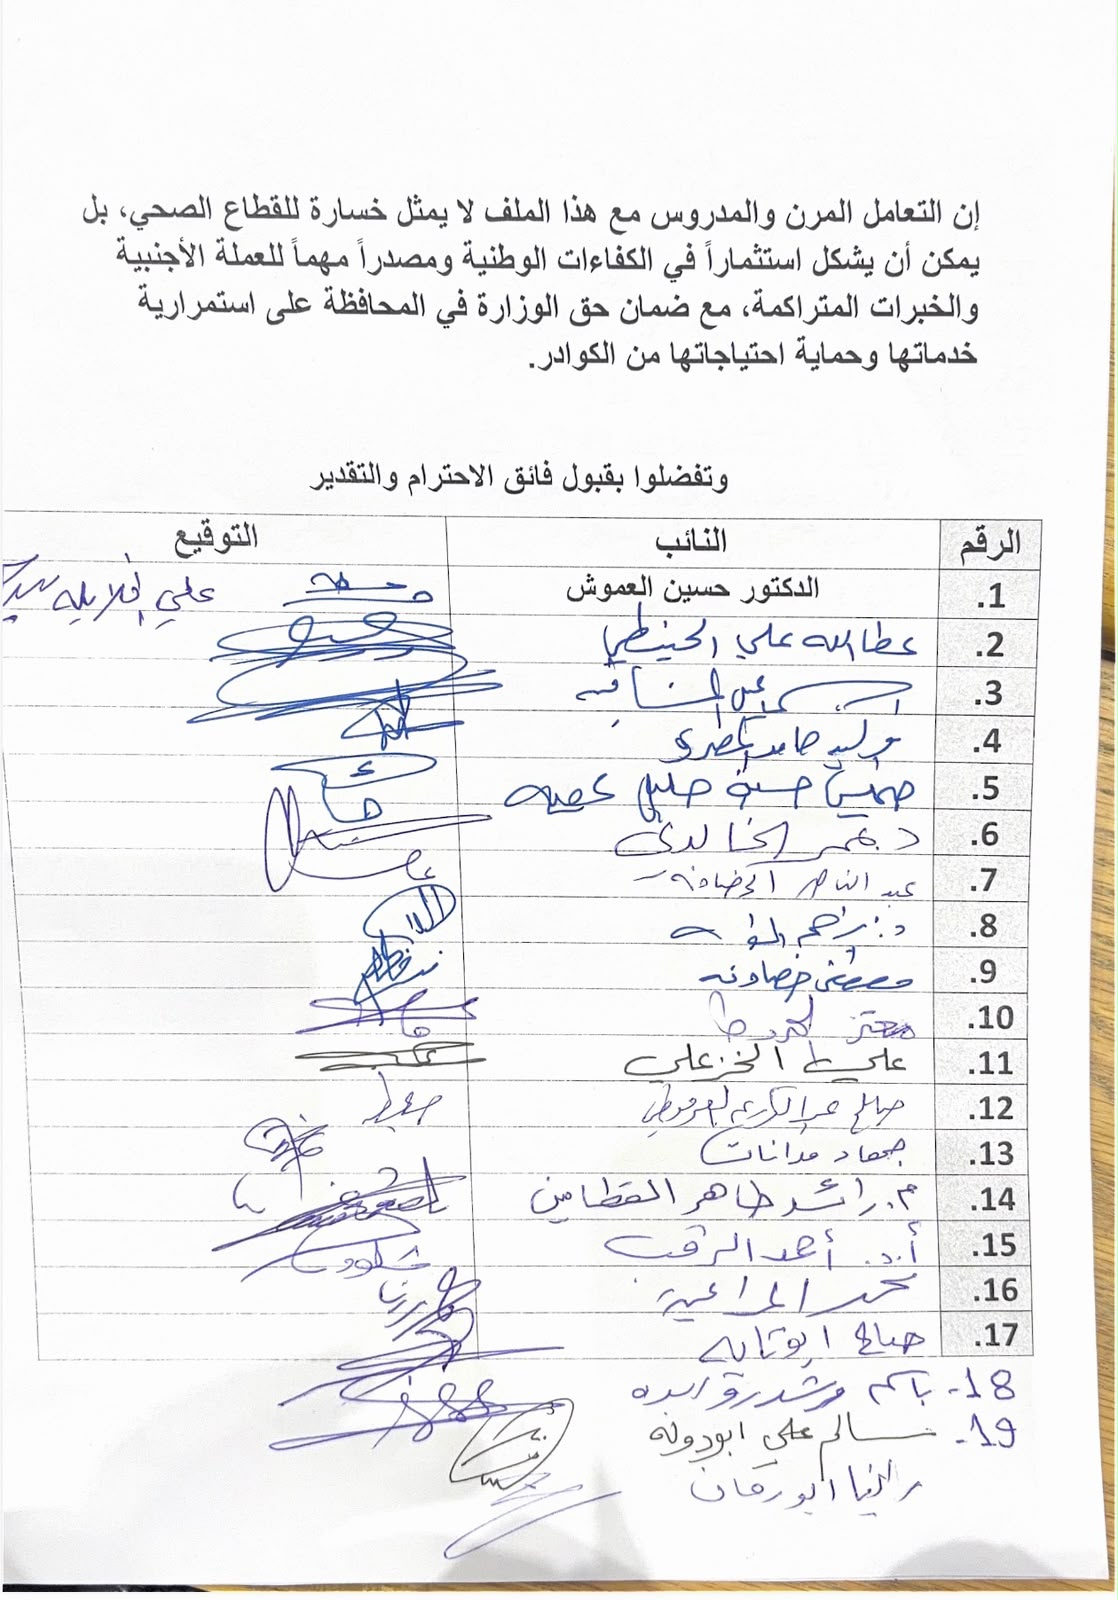 إن التعامل المرن والمدروس مع هذا الملف لا يمثل خسارة للقطاع الصحي، بل
يمكن أن يشكل استثماراً في الكفاءات الوطنية ومصدراً مهماً للعملة الأجنبية
والخبرات المتراكمة، مع ضمان حق الوزارة في المحافظة على استمرارية
خدماتها وحماية احتياجاتها من الكوادر.
وتفضلوا بقبول فائق الاحترام والتقدير
الرقم النائب التوقيع
1. الدكتور حسين العموش علي
2. عطا الله علي الحنيطي
3.
4. وليد حامد المصري
5. خليل عطية
6. د. الخالدي
7. عبد الناصر الخصاونة
8. د. إبراهيم
9. مصطفى خصاونه
10. معتز
11. علي الخزعلي
12. صالح عبد الكريم
13. جهاد مدانات
14. م. رائد طاهر القطامين
15. أ.د. أحمد
16. محمد المراعية
17. صالح ابو تايه
18- باسم
19- سالم علي ابو دوله
رانيا ابو رمان